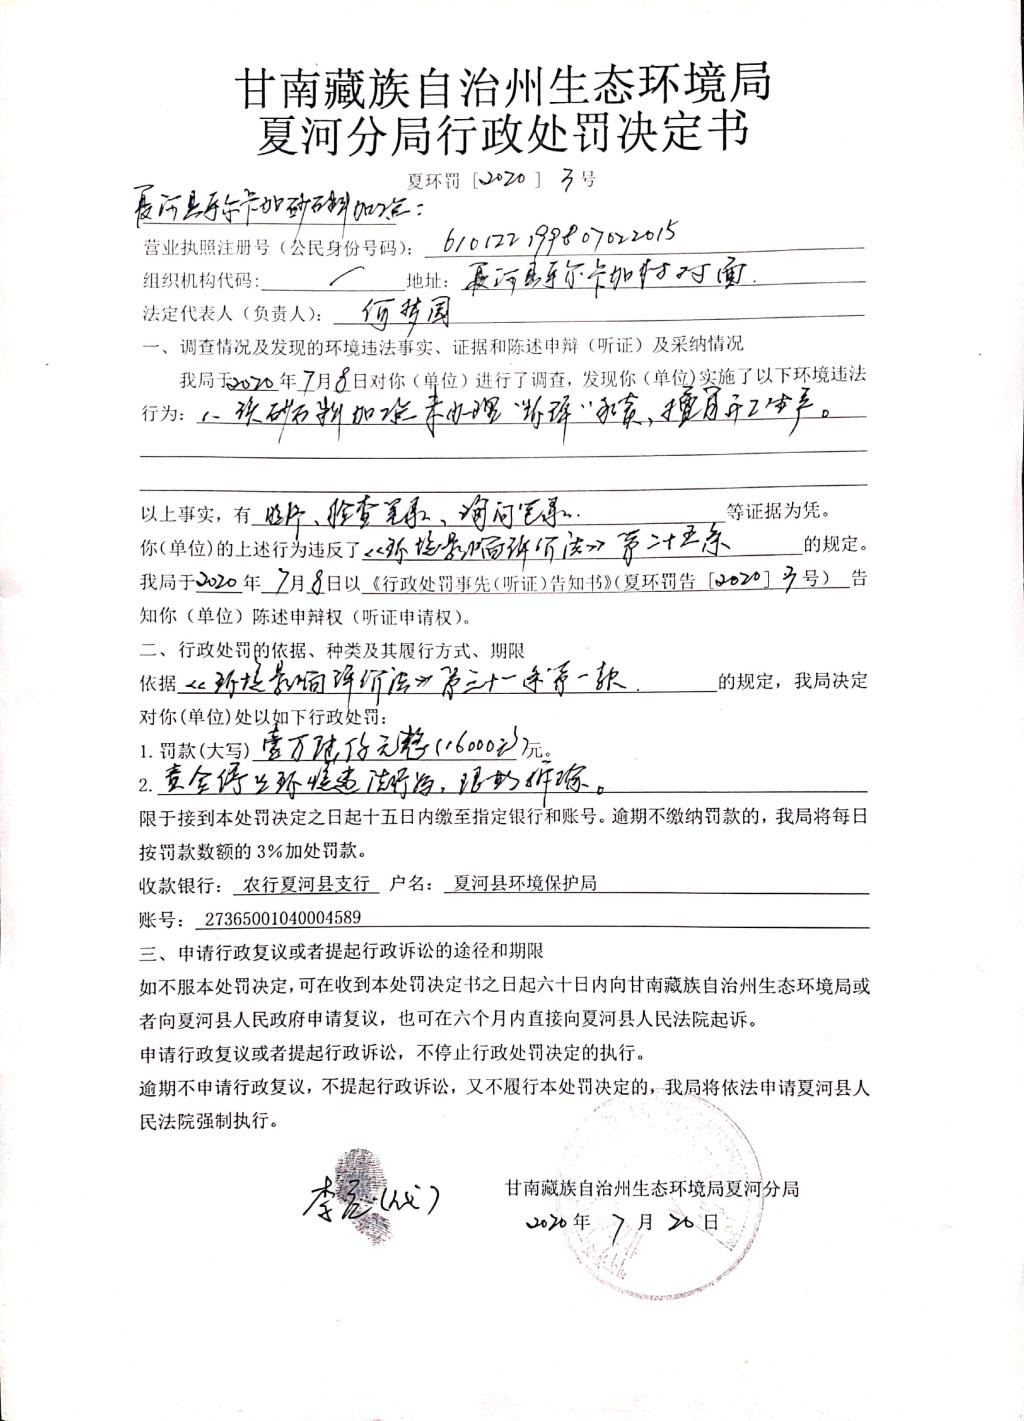 甘南藏族自治州生态环境局
夏河分局行政处罚决定书
夏环罚 [2020] 3号
夏河县尕尔卡加砂石料加工点:
营业执照注册号 (公民身份号码): 610122199807022015
组织机构代码: / 地址: 夏河县尕尔卡加村对面.
法定代表人 (负责人): 何梦圆
一、调查情况及发现的环境违法事实、证据和陈述申辩 (听证) 及采纳情况
我局于2020年7月8日对你 (单位) 进行了调查, 发现你 (单位)实施了以下环境违法
行为: 1、该砂石料加工点未办理“环评”手续、擅自开工生产。
以上事实, 有 照片、检查笔录、询问笔录. 等证据为凭。
你(单位)的上述行为违反了《环境影响评价法》第二十五条 的规定。
我局于2020年7月8日以《行政处罚事先(听证)告知书》(夏环罚告 [2020] 3号) 告
知你 (单位) 陈述申辩权 (听证申请权)。
二、行政处罚的依据、种类及其履行方式、期限
依据《环境影响评价法》第三十一条第一款. 的规定, 我局决定
对你(单位)处以如下行政处罚:
1. 罚款(大写) 壹万陆仟元整(16000元)元。
2. 责令停止环境违法行为, 限期拆除。
限于接到本处罚决定之日起十五日内缴至指定银行和账号。逾期不缴纳罚款的, 我局将每日
按罚款数额的 3%加处罚款。
收款银行: 农行夏河县支行 户名: 夏河县环境保护局
账号: 27365001040004589
三、申请行政复议或者提起行政诉讼的途径和期限
如不服本处罚决定, 可在收到本处罚决定书之日起六十日内向甘南藏族自治州生态环境局或
者向夏河县人民政府申请复议, 也可在六个月内直接向夏河县人民法院起诉。
申请行政复议或者提起行政诉讼, 不停止行政处罚决定的执行。
逾期不申请行政复议, 不提起行政诉讼, 又不履行本处罚决定的, 我局将依法申请夏河县人
民法院强制执行。
李 (代)
甘南藏族自治州生态环境局夏河分局
2020年 7月 20日